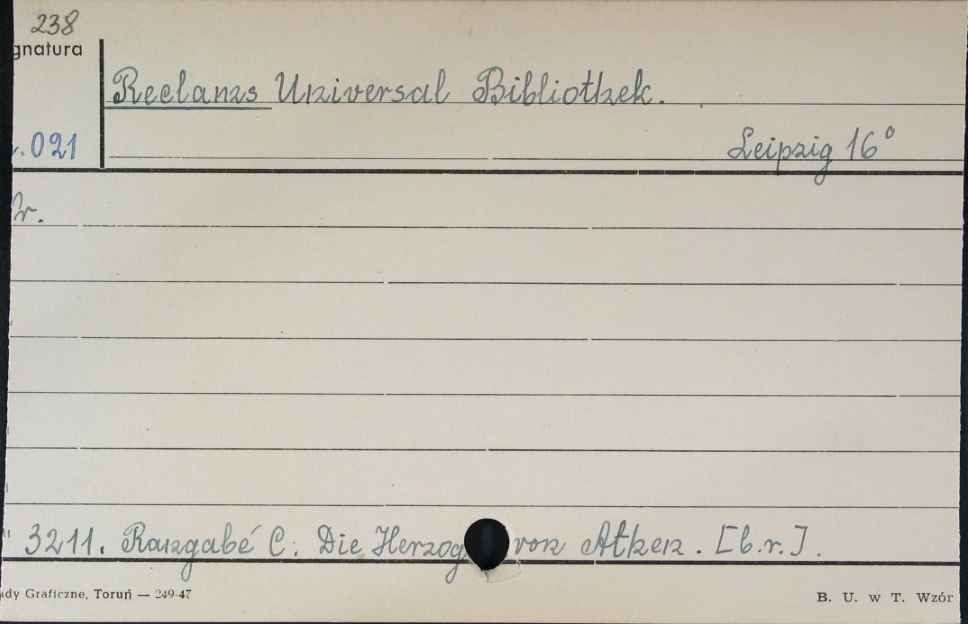 238
gnatura
Reclams Universal Bibliothek.
.021
Leipzig 16°
Nr.
" 3211. Rangabé C. Die Herzog von Athen. [b.r.].
ady Graficzne, Toruń — 249-47
B. U. w T. Wzór